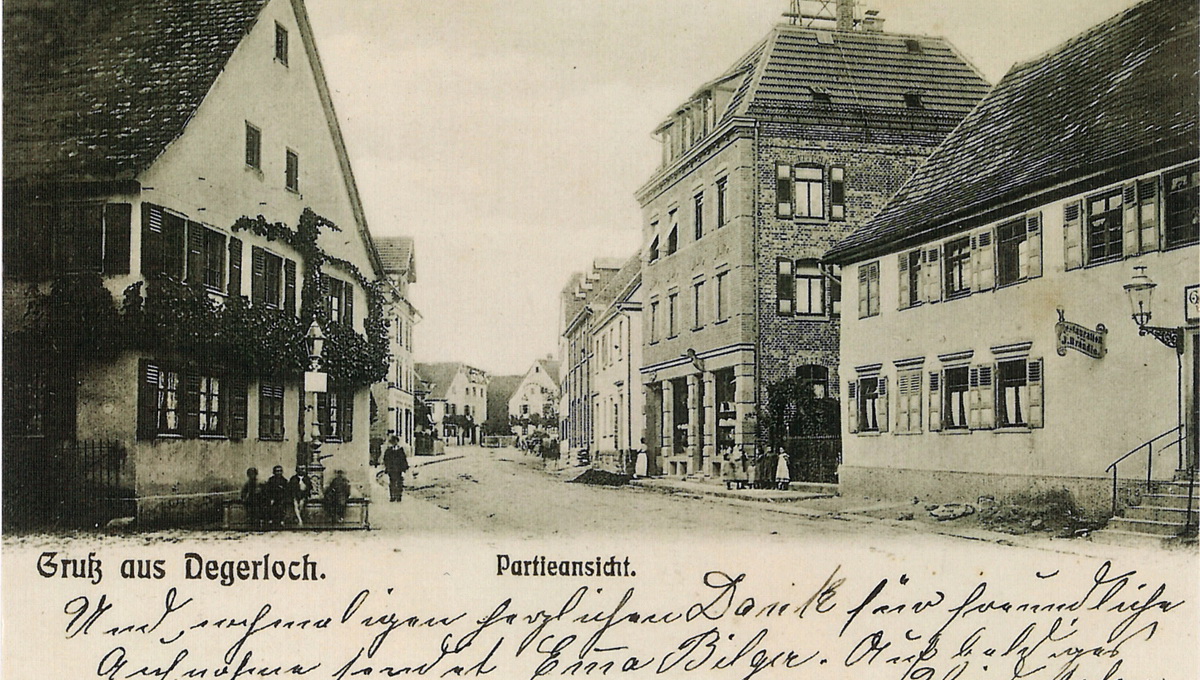 Restauration
Gruß aus Degerloch.
Partieansicht.
Und nochmaligen herzlichen Dank für freundliche
Aufnahme sendet Ema Bilger. Auf baldiges